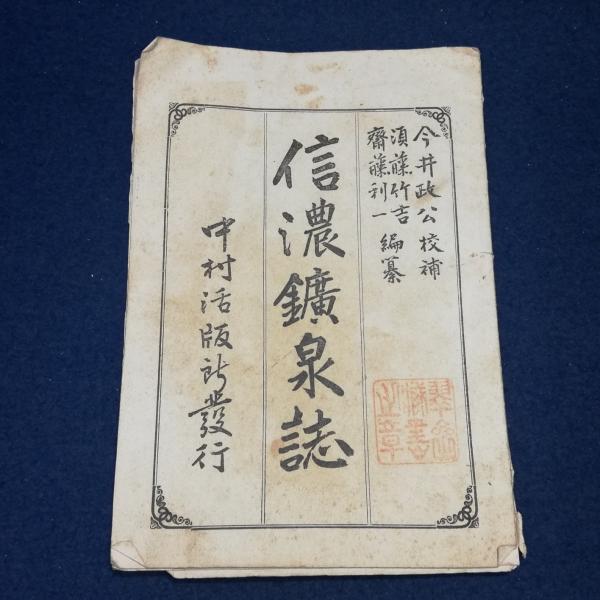 今井政公 校補
須藤竹吉
齋藤利一 編纂
信濃鑛泉誌
中村活版所發行